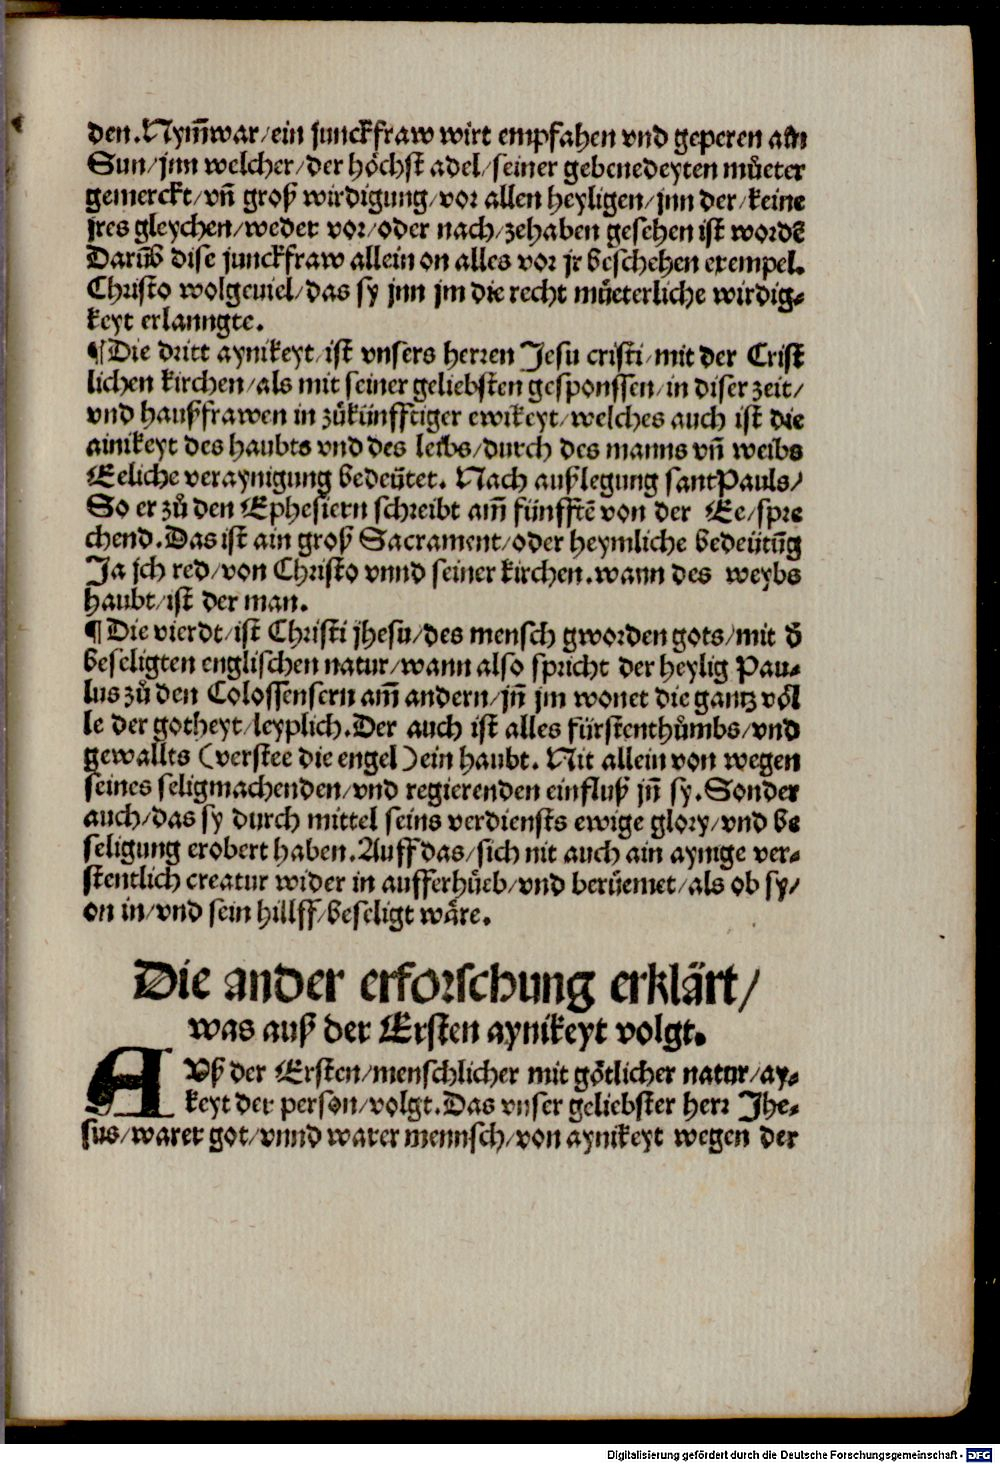 den.Nym̄war/ein junckfraw wirt empfahen vnd geperen ain
Sun/jnn welcher/der höchst adel/seiner gebenedeyten můeter
gemerckt/vn̄ groß wirdigung/vor allen heyligen/jnn der/keine
jres gleychen/weder vor/oder nach/zehaben gesehen ist wordē
Darūb dise junckfraw allein on alles vor jr beschehen exempel.
Christo wolgeuiel/das sy jnn jm die recht müeterliche wirdig-
keyt erlanngte.
¶Die dritt aynikeyt/ist vnsers herren Jesu cristi/mit der Crist
lichen kirchen/als mit seiner geliebsten gesponssen/in diser zeit/
vnd haußfrawen in zůkünfftiger ewikeyt/welches auch ist die
ainikeyt des haubts vnd des leibs/durch des manns vn̄ weibs
Eeliche veraynigung bedeütet. Nach außlegung sant Pauls/
So er zů den Ephesiern schreibt am̄ fünfftē von der Ee/spre
chend.Das ist ain groß Sacrament/oder heymliche bedeütūg
Ja jch red/von Christo vnnd seiner kirchen.wann des weybs
haubt/ist der man.
¶Die vierdt/ist Christi jhesu/des mensch gworden gots/mit d̄
beseligten englischen natur/wann also spricht der heylig Pau-
lus zů den Colossensern am̄ andern/jn̄ jm wonet die gantz völ
le der gotheyt/leyplich.Der auch ist alles fürstenthůmbs/vnd
gewallts (verstee die engel) ein haubt. Nit allein von wegen
seines seligmachenden/vnd regierenden einfluß jn̄ sy.Sonder
auch/das sy durch mittel seins verdiensts ewige glory/vnd be
seligung erobert haben.Auff das/sich nit auch ain aynige ver-
stentlich creatur wider in aufferhüeb/vnd berüemet/als ob sy/
on in/vnd sein hillff/beseligt wäre.
Die ander erforschung erklärt/
was auß der Ersten aynikeyt volgt.
AVß der Ersten/menschlicher mit götlicher natur/ay-
keyt der person/volgt.Das vnser geliebster herr Jhe-
sus/warer got/vnnd warer mennsch/von aynikeyt wegen der
Digitalisierung gefördert durch die Deutsche Forschungsgemeinschaft - DFG